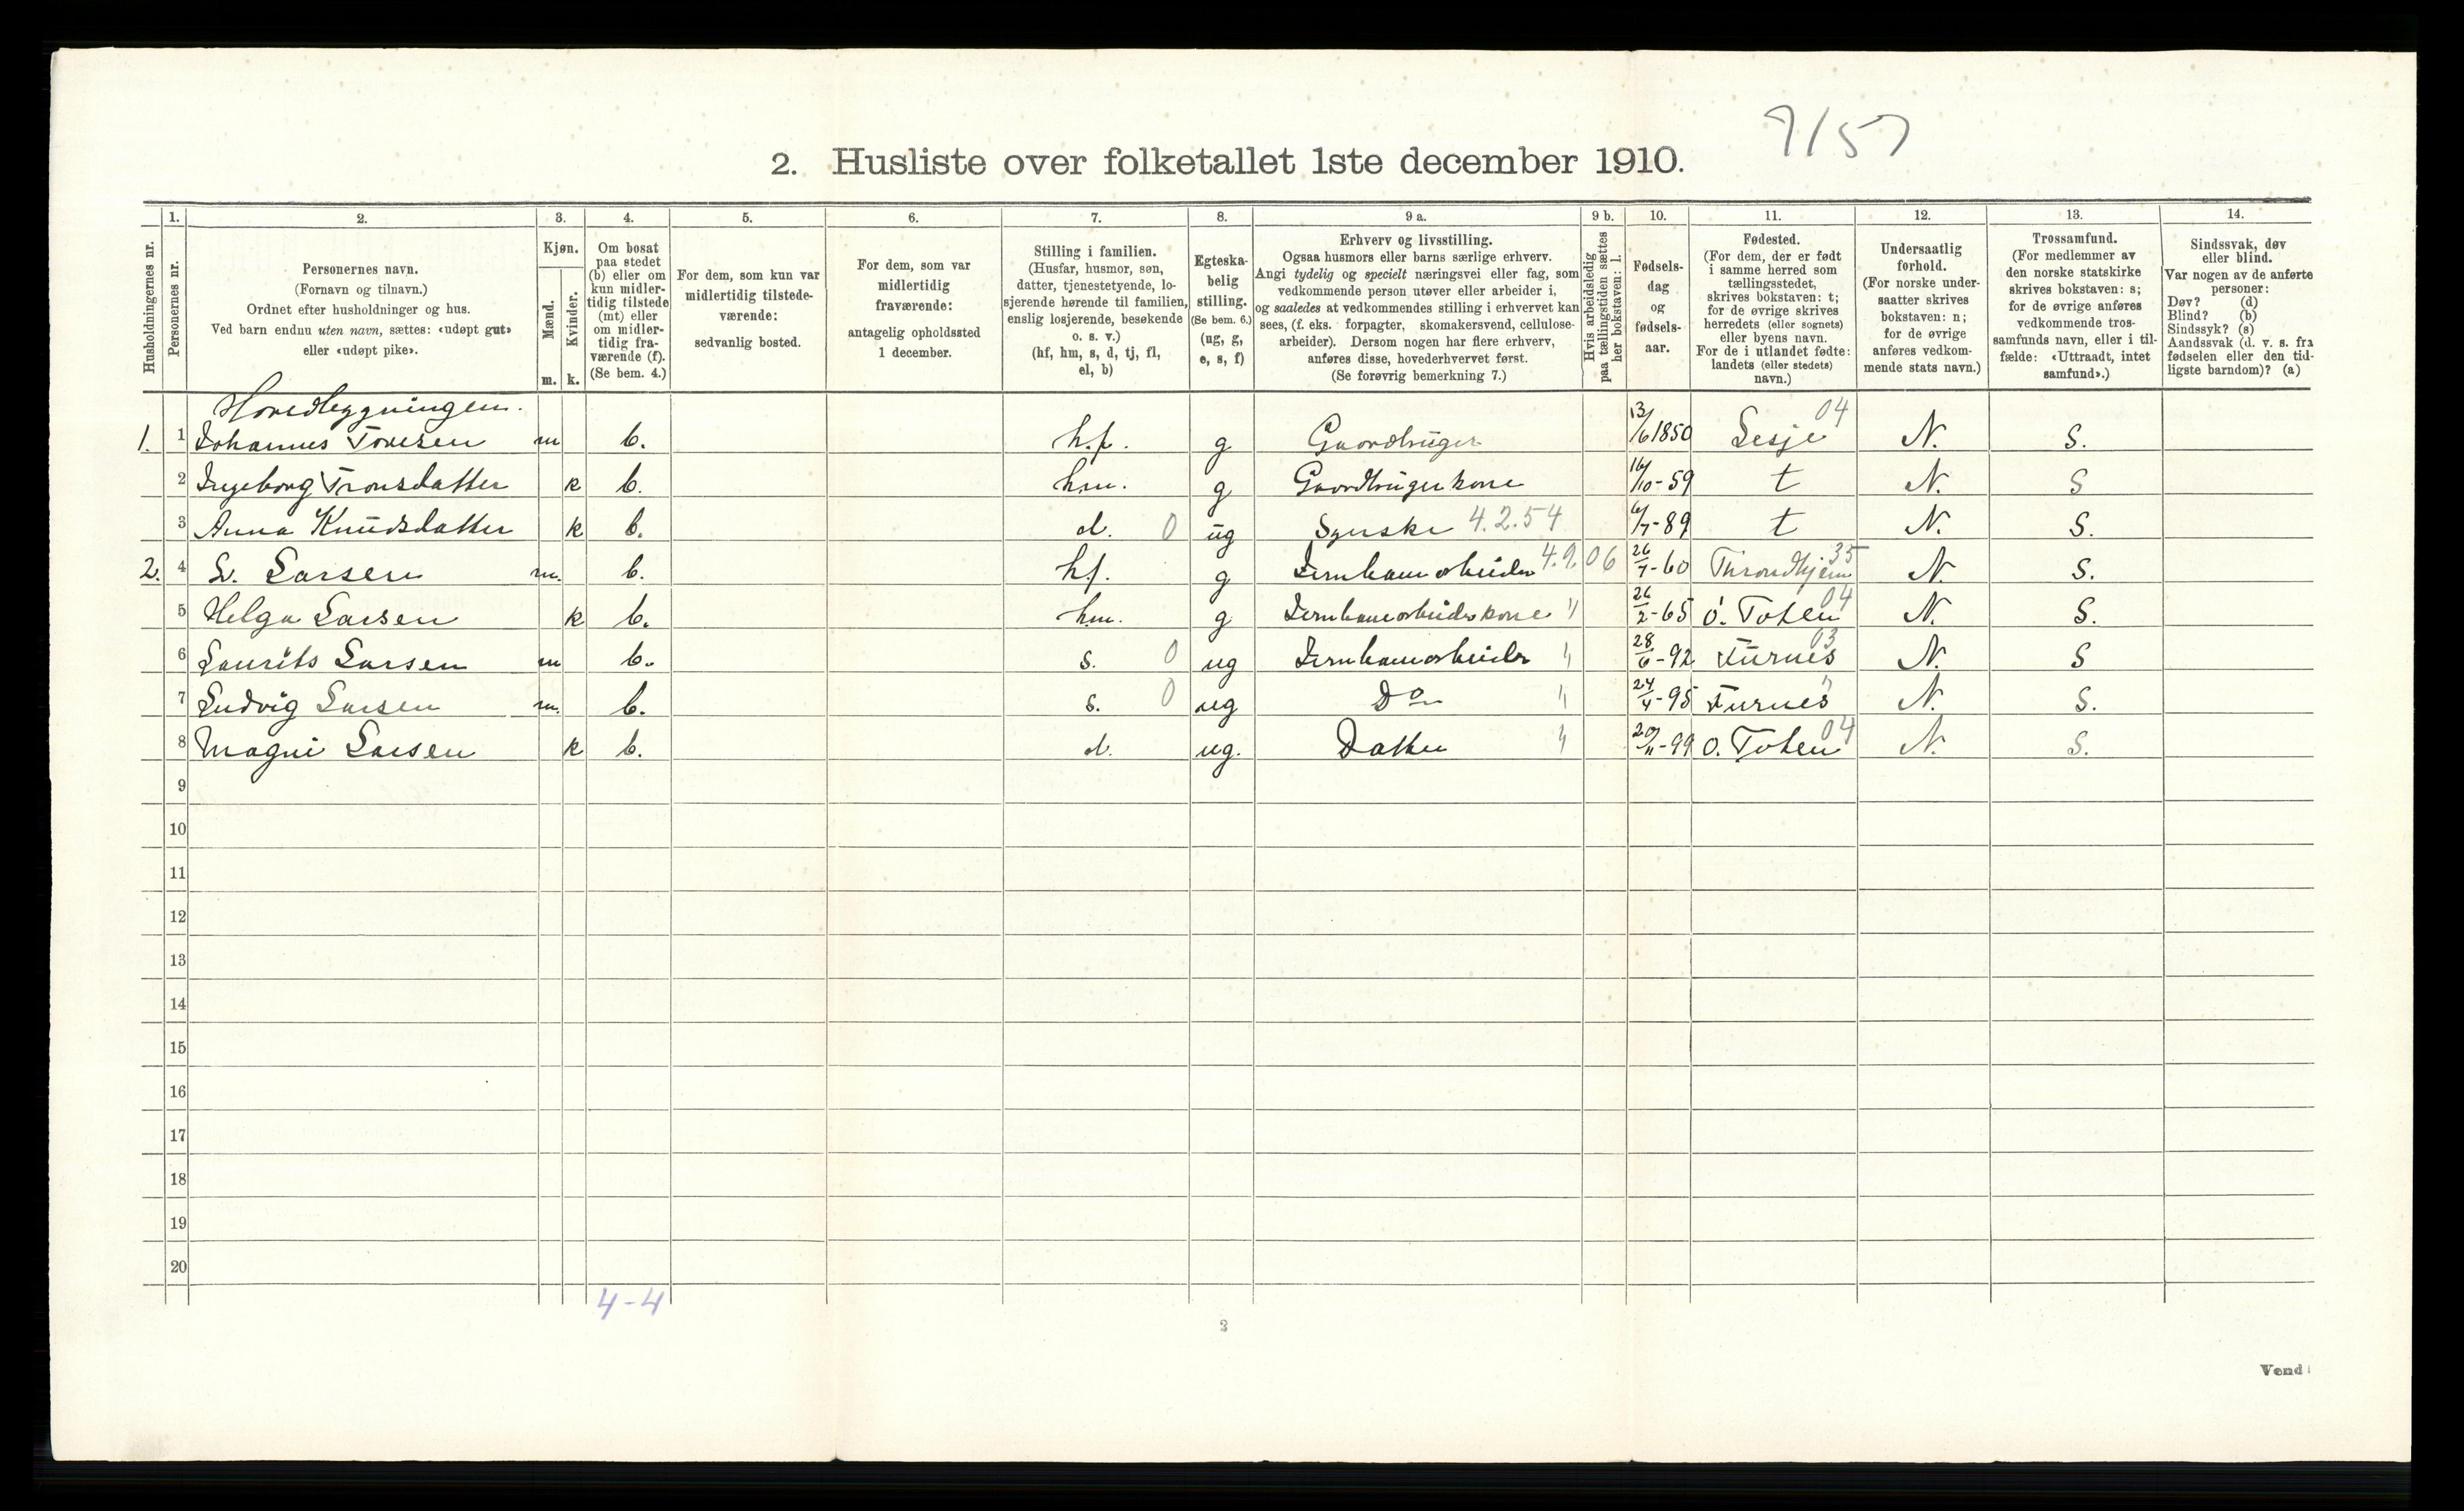 9/57
2. Husliste over folketallet 1ste december 1910.
1. 2. 3. 4. 5. 6. 7. 8. 9 a. 9 b. 10. 11. 12. 13. 14.
Husholdningernes nr.
Personernes nr.
Personernes navn.
(Fornavn og tilnavn.)
Ordnet efter husholdninger og hus.
Ved barn endnu uten navn, sættes: «udøpt gut»
eller «udøpt pike».
Kjøn.
Mænd.
Kvinder.
m. k.
Om bosat
paa stedet
(b) eller om
kun midler-
tidig tilstede
(mt) eller
om midler-
tidig fra-
værende (f).
(Se bem. 4.)
For dem, som kun var
midlertidig tilstede-
værende:
sedvanlig bosted.
For dem, som var
midlertidig
fraværende:
antagelig opholdssted
1 december.
Stilling i familien.
(Husfar, husmor, søn,
datter, tjenestetyende, lo-
sjerende hørende til familien,
enslig losjerende, besøkende
o. s. v.)
(hf, hm, s, d, tj, fl,
el, b)
Egteska-
belig
stilling.
(Se bem. 6.)
(ug, g,
e, s, f)
Erhverv og livsstilling.
Ogsaa husmors eller barns særlige erhverv.
Angi tydelig og specielt næringsvei eller fag, som
vedkommende person utøver eller arbeider i,
og saaledes at vedkommendes stilling i erhvervet kan
sees, (f. eks. forpagter, skomakersvend, cellulose-
arbeider). Dersom nogen har flere erhverv,
anføres disse, hovederhvervet først.
(Se forøvrig bemerkning 7.)
Hvis arbeidsledig
paa tællingstiden sættes
her bokstaven: l.
Fødsels-
dag
og
fødsels-
aar.
Fødested.
(For dem, der er født
i samme herred som
tællingsstedet,
skrives bokstaven: t;
for de øvrige skrives
herredets (eller sognets)
eller byens navn.
For de i utlandet fødte:
landets (eller stedets)
navn.)
Undersaatlig
forhold.
(For norske under-
saatter skrives
bokstaven: n;
for de øvrige
anføres vedkom-
mende stats navn.)
Trossamfund.
(For medlemmer av
den norske statskirke
skrives bokstaven: s;
for de øvrige anføres
vedkommende tros-
samfunds navn, eller i til-
fælde: «Uttraadt, intet
samfund».)
Sindssvak, døv
eller blind.
Var nogen av de anførte
personer:
Døv? (d)
Blind? (b)
Sindssyk? (s)
Aandssvak (d. v. s. fra
fødselen eller den tid-
ligste barndom)? (a)
Hovedbygningen.
1. 1 Johannes Toresen m b. h.f. g Gaardbruger 13/6 1850 Lesje 04 N. S.
2 Ingeborg Tronsdatter k b. hm. g Gaardbrugerkone 16/10-59 t N. S
3 Anna Knudsdatter k b. d. 0 ug Syerske 4.2.54 6/7-89 t N. S.
2. 4 L. Larsen m. b. hf. g Jernbanearbeider 4.9.06 26/7-60 Throndhjem 35 N. S.
5 Helga Larsen k b. hm. g Jernbanearbeiderkone " 26/2-65 Ø. Toten 04 N. S.
6 Laurits Larsen m b. s. 0 ug Jernbanearbeider " 28/6-92 Furnes 03 N. S
7 Ludvig Larsen m. b. s. 0 ug Do " 24/4-95 Furnes " N. S.
8 Magni Larsen k b. d. ug. Datter " 20/11-99 Ø. Toten 04 N. S.
9
10
11
12
13
14
15
16
17
18
19
20
4-4
3
Vend!